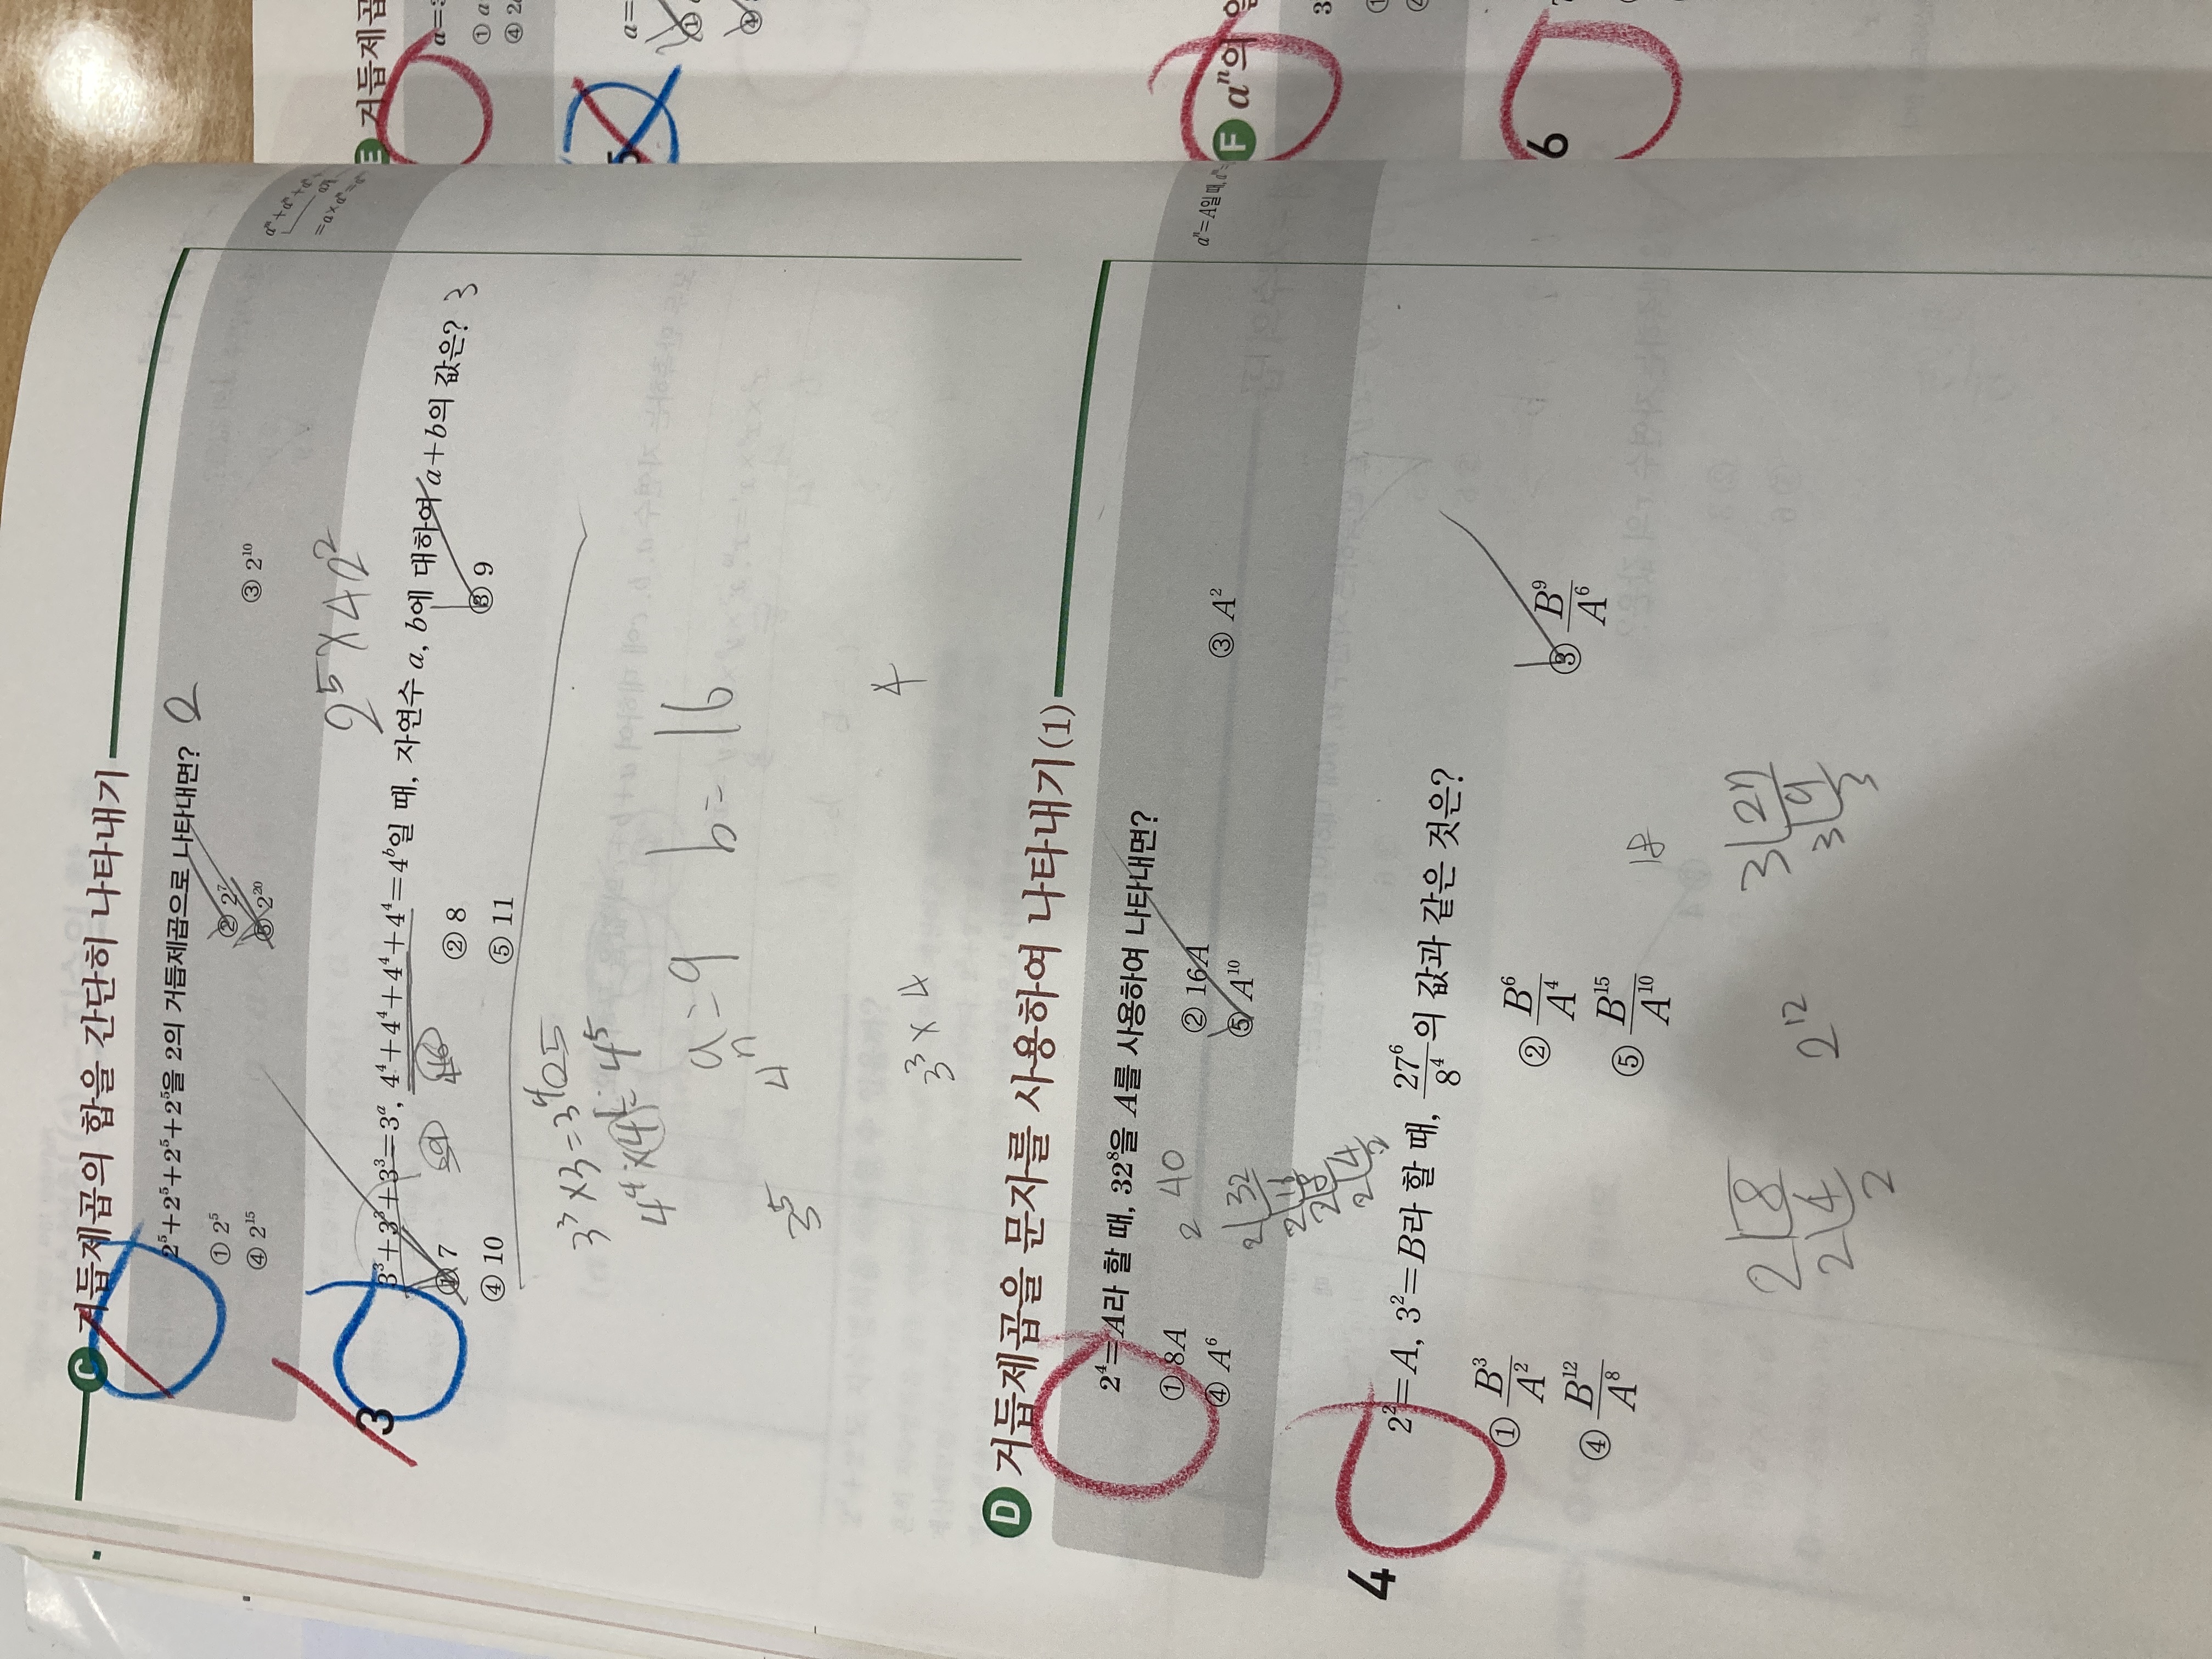 C 거듭제곱의 합을 간단히 나타내기
2⁵+2⁵+2⁵+2⁵을 2의 거듭제곱으로 나타내면? 2
① 2⁵ ② 2⁷ ③ 2¹⁰
④ 2¹⁵ ⑤ 2²⁰
2⁵×4 2²
3 3³+3³+3³=3ᵃ, 4⁴+4⁴+4⁴+4⁴=4ᵇ일 때, 자연수 a, b에 대하여 a+b의 값은? 3
① 7 ② 8 ③ 9
④ 10 ⑤ 11
4⁴×4=4⁵
a=9 b=16
3⁵
3³×4
D 거듭제곱을 문자를 사용하여 나타내기(1)
2⁴=A라 할 때, 32⁸을 A를 사용하여 나타내면?
① 8A ② 16A ③ A²
④ A⁶ ⑤ A¹⁰
2 40
2 32
4 2²=A, 3²=B라 할 때, 27⁶/8⁴의 값과 같은 것은?
① B³/A² ② B⁶/A⁴ ③ B⁹/A⁶
④ B¹²/A⁸ ⑤ B¹⁵/A¹⁰
18
2 8 2¹² 3 27
2 4 3 9
2 3
E 거듭제곱
F aⁿ의 일
6